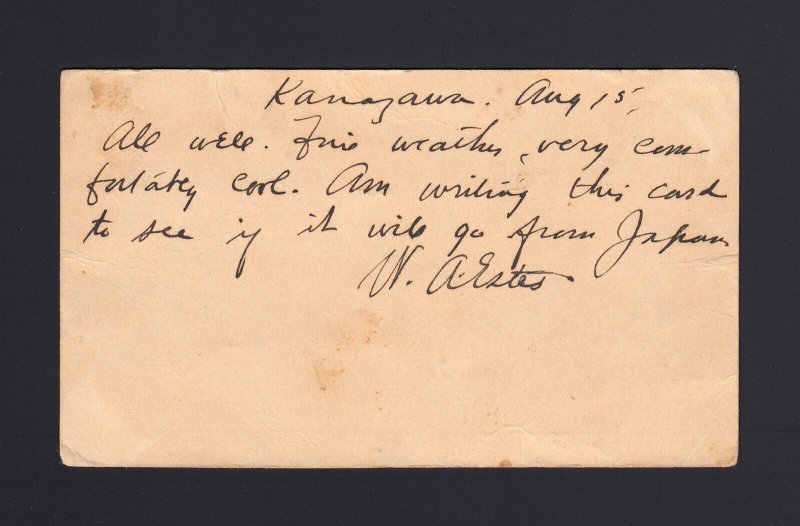 Kanazawa. Aug 15,
All well. Fine weather, very com
fortably cool. Am writing this card
to see if it will go from Japan
W. A. Estes